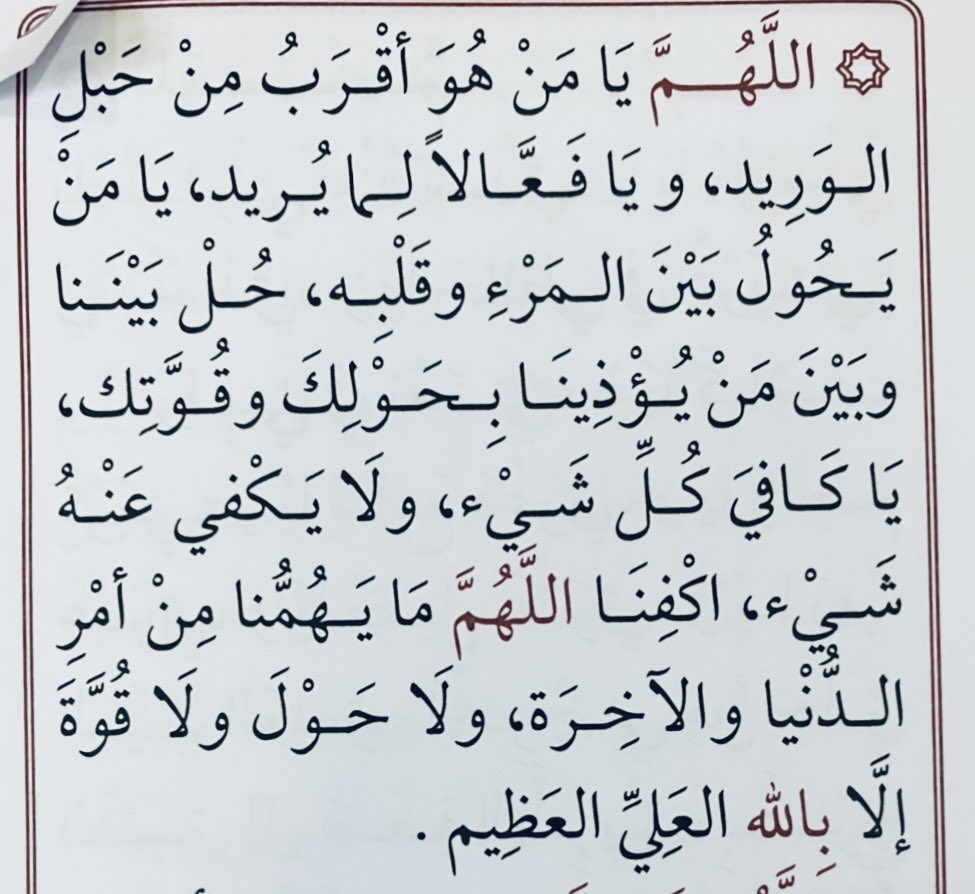 اللَّهُـمَّ يَا مَنْ هُوَ أقْرَبُ مِنْ حَبْلِ
الوَرِيد، و يَا فَعَّالاً لِما يُريد، يَا مَنْ
يَحُولُ بَيْنَ المَرْءِ وقَلْبِه، حُلْ بَيْنَنا
وبَيْنَ مَنْ يُؤْذِينَا بِحَوْلِكَ وقُوَّتِك،
يَا كَافيَ كُلِّ شَيْء، ولَا يَكْفي عَنْهُ
شَيْء، اكْفِنَا اللَّهُمَّ مَا يَهُمُّنا مِنْ أمْرِ
الدُّنْيا والآخِرَة، ولَا حَوْلَ ولَا قُوَّةَ
إلَّا بِالله العَلِيِّ العَظِيم .